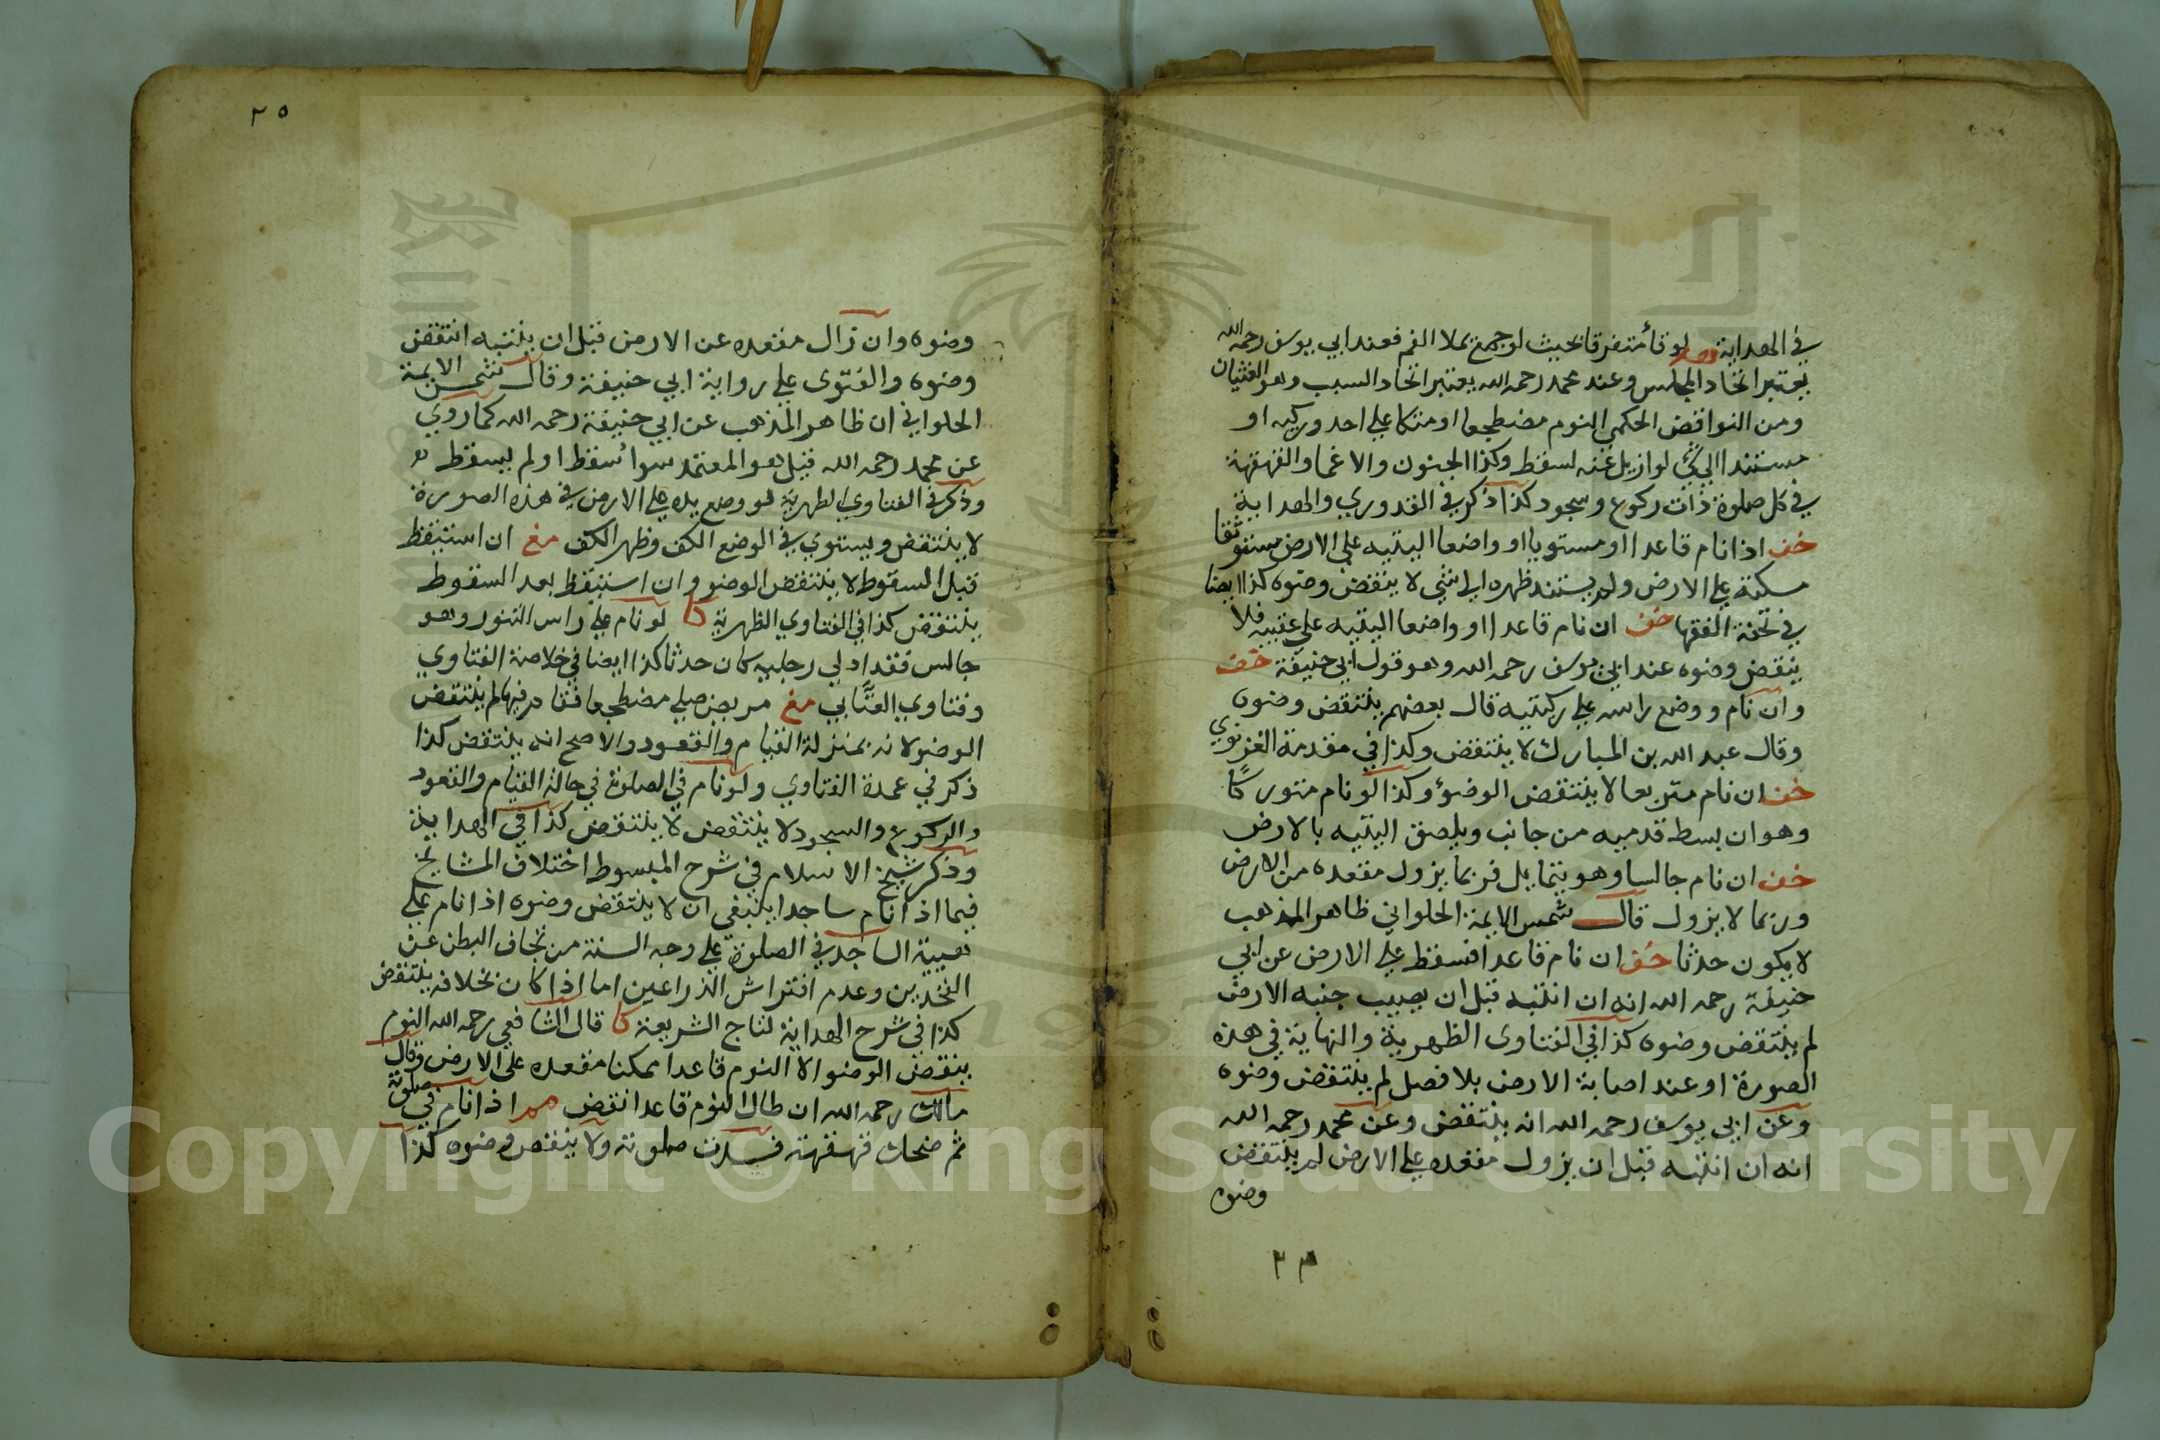 في الهداية ولو قاء متفرقا بحيث لو جمع يملا الفم فعند ابي يوسف رحمه الله
يعتبر اتحاد المجلس وعند محمد رحمه الله يعتبر اتحاد السبب وهو الغثيان
ومن النواقض الحكمي النوم مضطجعا او متكا علي احد وركيه او
مستندا الي شيء لو ازيل عنه لسقط وكذا الجنون والاغما والقهقهة
في كل صلوة ذات ركوع وسجود كذا ذكر في القدوري والهداية
خف اذا نام قاعدا او مستويا او واضعا اليتيه علي الارض مستوثقا
مسكته علي الارض ولم يستند ظهره الي شي لا ينقض وضوه كذا ايضا
في تحفة الفقها خف ان نام قاعدا او واضعا اليتيه علي عقبيه فلا
ينقض وضوه عند ابي يوسف رحمه الله وهو قول ابي حنيفة خف
وان نام ووضع راسه علي ركبتيه قال بعضهم ينتقض وضوه
وقال عبد الله بن المبارك لا ينتقض وكذا في مقدمة الغزنوي
خف ان نام متربعا لا ينتقض الوضؤ وكذا لو نام متوركا
وهو ان بسط قدميه من جانب ويلصق اليتيه بالارض
خف ان نام جالسا وهو يتمايل فربما يزول مقعده من الارض
وربما لا يزول قال شمس الايمة الحلواني ظاهر المذهب
لا يكون حدثا خف ان نام قاعدا فسقط علي الارض عن ابي
حنيفة رحمه الله انه ان انتبه قبل ان يصيب جنبه الارض
لم ينتقض وضوه كذا في الفتاوى الظهرية والنهاية في هذه
الصورة او عند اصابة الارض بلا فصل لم ينتقض وضوه
وعن ابي يوسف رحمه الله انه ينتقض وعن محمد رحمه الله
انه ان انتبه قبل ان يزول مقعده علي الارض لم ينتقض
وضوه
٢٣
٢٥
وضوه وان زال مقعده عن الارض قبل ان ينتبه انتقض
وضوه والفتوى علي رواية ابي حنيفة وقال شمس الايمة
الحلواني ان ظاهر المذهب عن ابي حنيفة رحمه الله كما روي
عن محمد رحمه الله قيل هو المعتمد سوا سقط او لم يسقط
وذكر في الفتاوي الظهرية لو وضع يده علي الارض في هذه الصورة
لا ينتقض ويستوي في الوضع الكف وظهر الكف مغ ان استيقظ
قبل السقوط لا ينتقض الوضو وان استيقظ بعد السقوط
ينتقض كذا في الفتاوي الظهرية كا لو نام علي راس التنور وهو
جالس فقد ادلي رجليه كان حدثا كذا ايضا في خلاصة الفتاوي
وفتاوي العتابي مغ مريض صلي مضطجعا فنام فيها لم ينتقض
الوضو لانه بمنزلة القيام والقعود والاصح انه ينتقض كذا
ذكر في عمدة الفتاوي ولو نام في الصلوة في حالة القيام والقعود
والركوع والسجود لا ينتقض لا ينتقض كذا في الهداية
وذكر شيخ الاسلام في شرح المبسوط اختلاف المشايخ
فيما اذا نام ساجدا ينبغي ان لا ينتقض وضوه اذا نام علي
هييية الساجد في الصلوة علي وجه السنة من تجاف البطن عن
الفخدين وعدم افتراش الذراعين اما اذا كان بخلافه ينتقض
كذا في شرح الهداية لتاج الشريعة كا قال الشافعي رحمه الله النوم
ينقض الوضو الا النوم قاعدا ممكنا مقعده علي الارض وقال
مالك رحمه الله ان طال النوم قاعدا انقض اذا نام في صلوته
ثم ضحك قهقهة فسدت صلوته ولا ينقض وضوه كذا
Copyright © King Saud University
1957